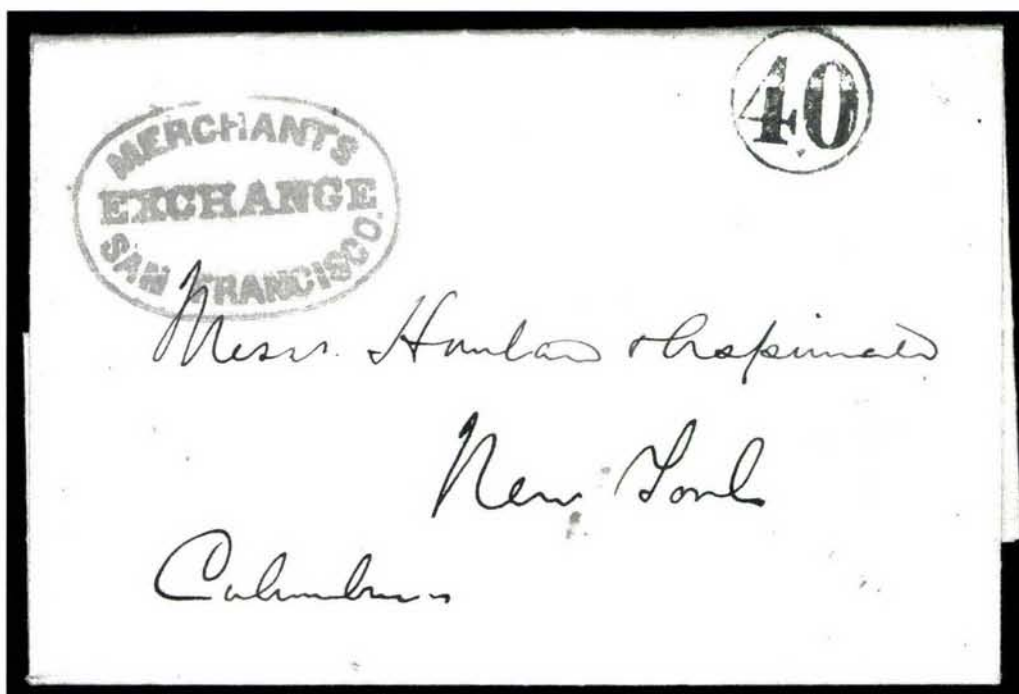 40
MERCHANTS
EXCHANGE
SAN FRANCISCO.
Messrs. Howland & Aspinwall
New York
Columbus